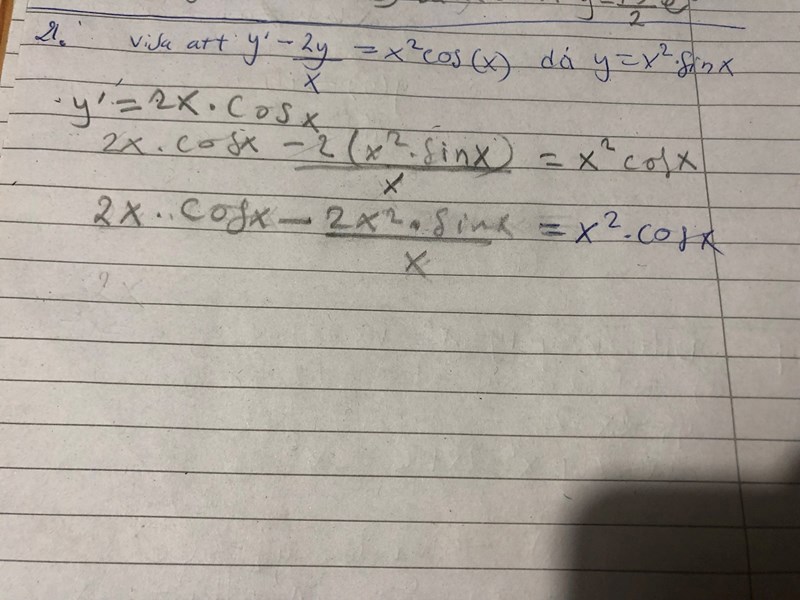 2
21. visa att y' - 2y/x = x²cos(x) då y = x²·sinx
· y' = 2x · cosx
2x · cosx - 2(x²·sinx)/x = x² cosx
2x ·· cosx - 2x²·sinx/x = x²·cosx
? x